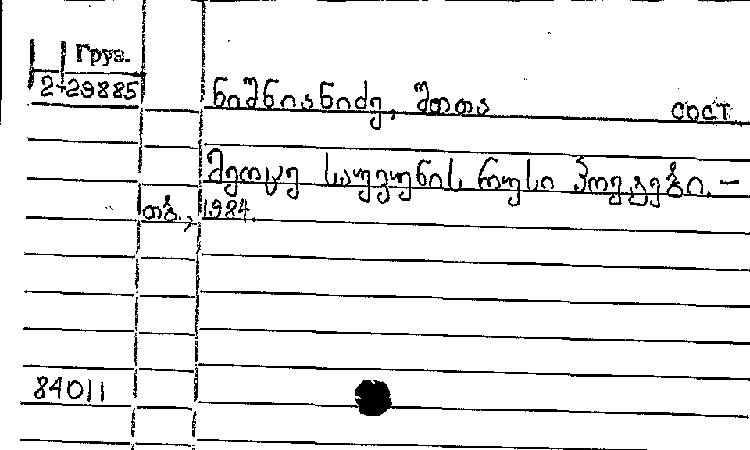 Груз.
2-29885
ნიშნიანიძე, შოთა сост.
მეოცე საუკუნის რუსი პოეტები. —
თბ., 1984.
84011